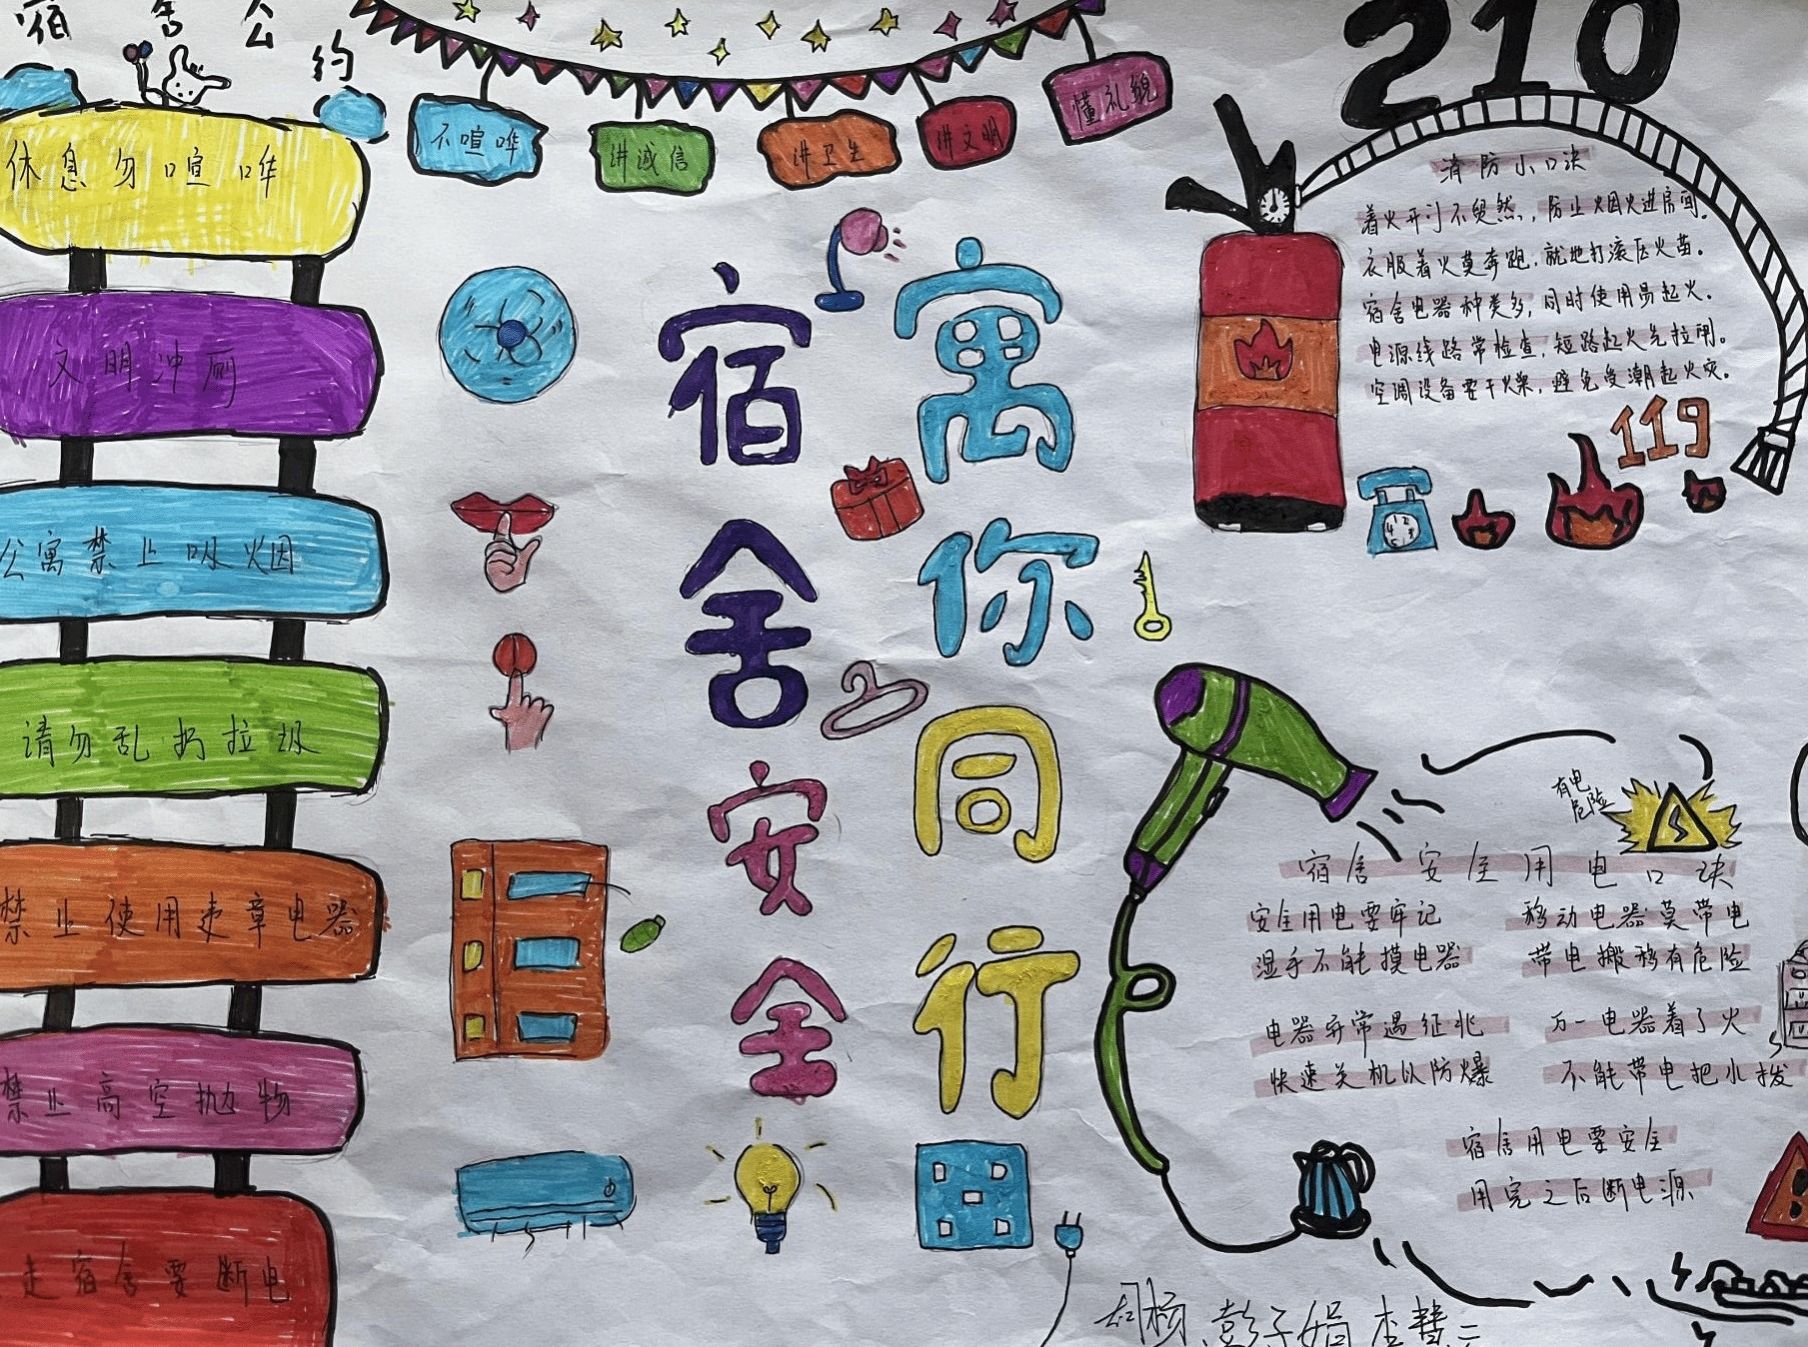 宿舍公约
休息勿喧哗
文明冲厕
公寓禁止吸烟
请勿乱扔垃圾
禁止使用违章电器
禁止高空抛物
走宿舍要断电
不喧哗
讲诚信
讲卫生
讲文明
懂礼貌
宿舍安全
寓你同行
210
消防小口诀
着火开门不贸然，防止烟火进房间。
衣服着火莫奔跑，就地打滚压火苗。
宿舍电器种类多，同时使用易起火。
电源线路常检查，短路起火先拉闸。
空调设备要干燥，避免受潮起火灾。
119
有电
危险
宿舍安全用电口诀
安全用电要牢记 移动电器莫带电
湿手不能摸电器 带电搬移有危险
电器异常遇征兆 万一电器着了火
快速关机以防爆 不能带电把水拨
宿舍用电要安全
用完之后断电源
胡杨、彭子娟